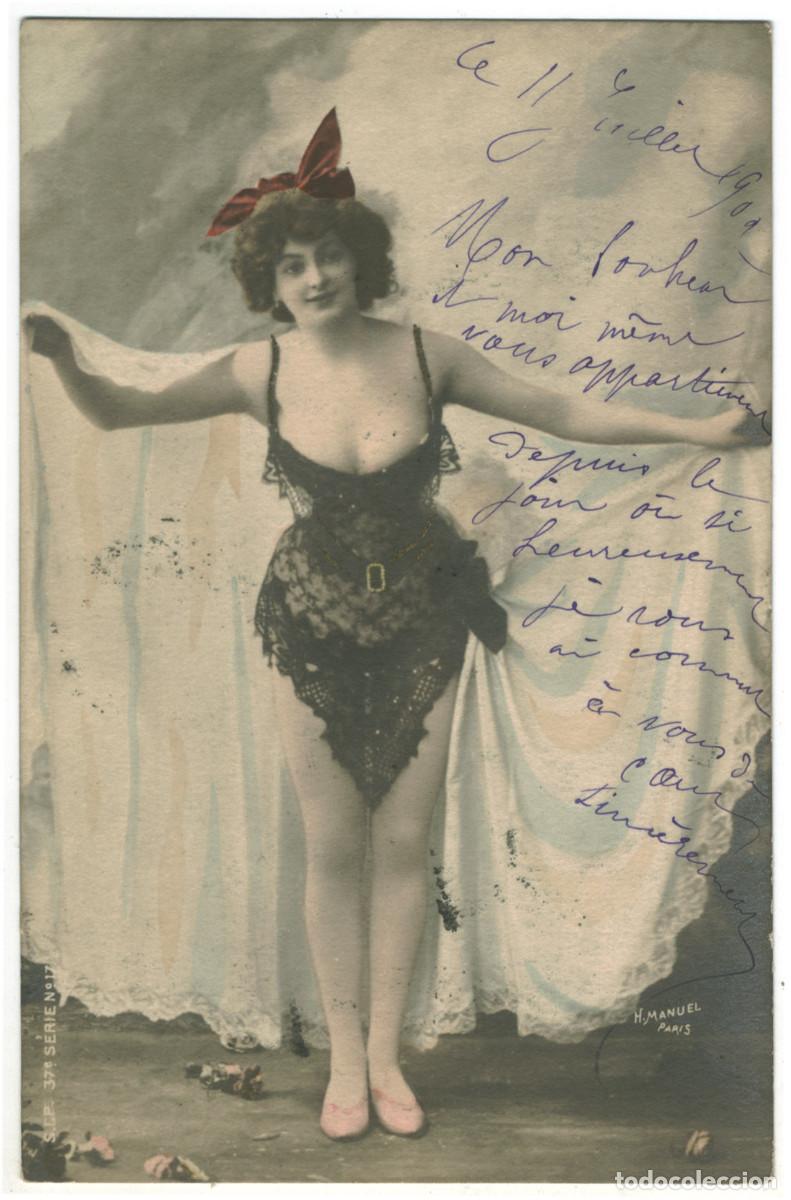 Le 11 Juillet 190
Mon bonheur
et moi même
vous appartiennent
depuis le
jour où si
heureusement
je vous
ai connu
à vous de
cœur
sincèrement
H. MANUEL
PARIS
S.I.P. 37e SÉRIE No 17
todocoleccion